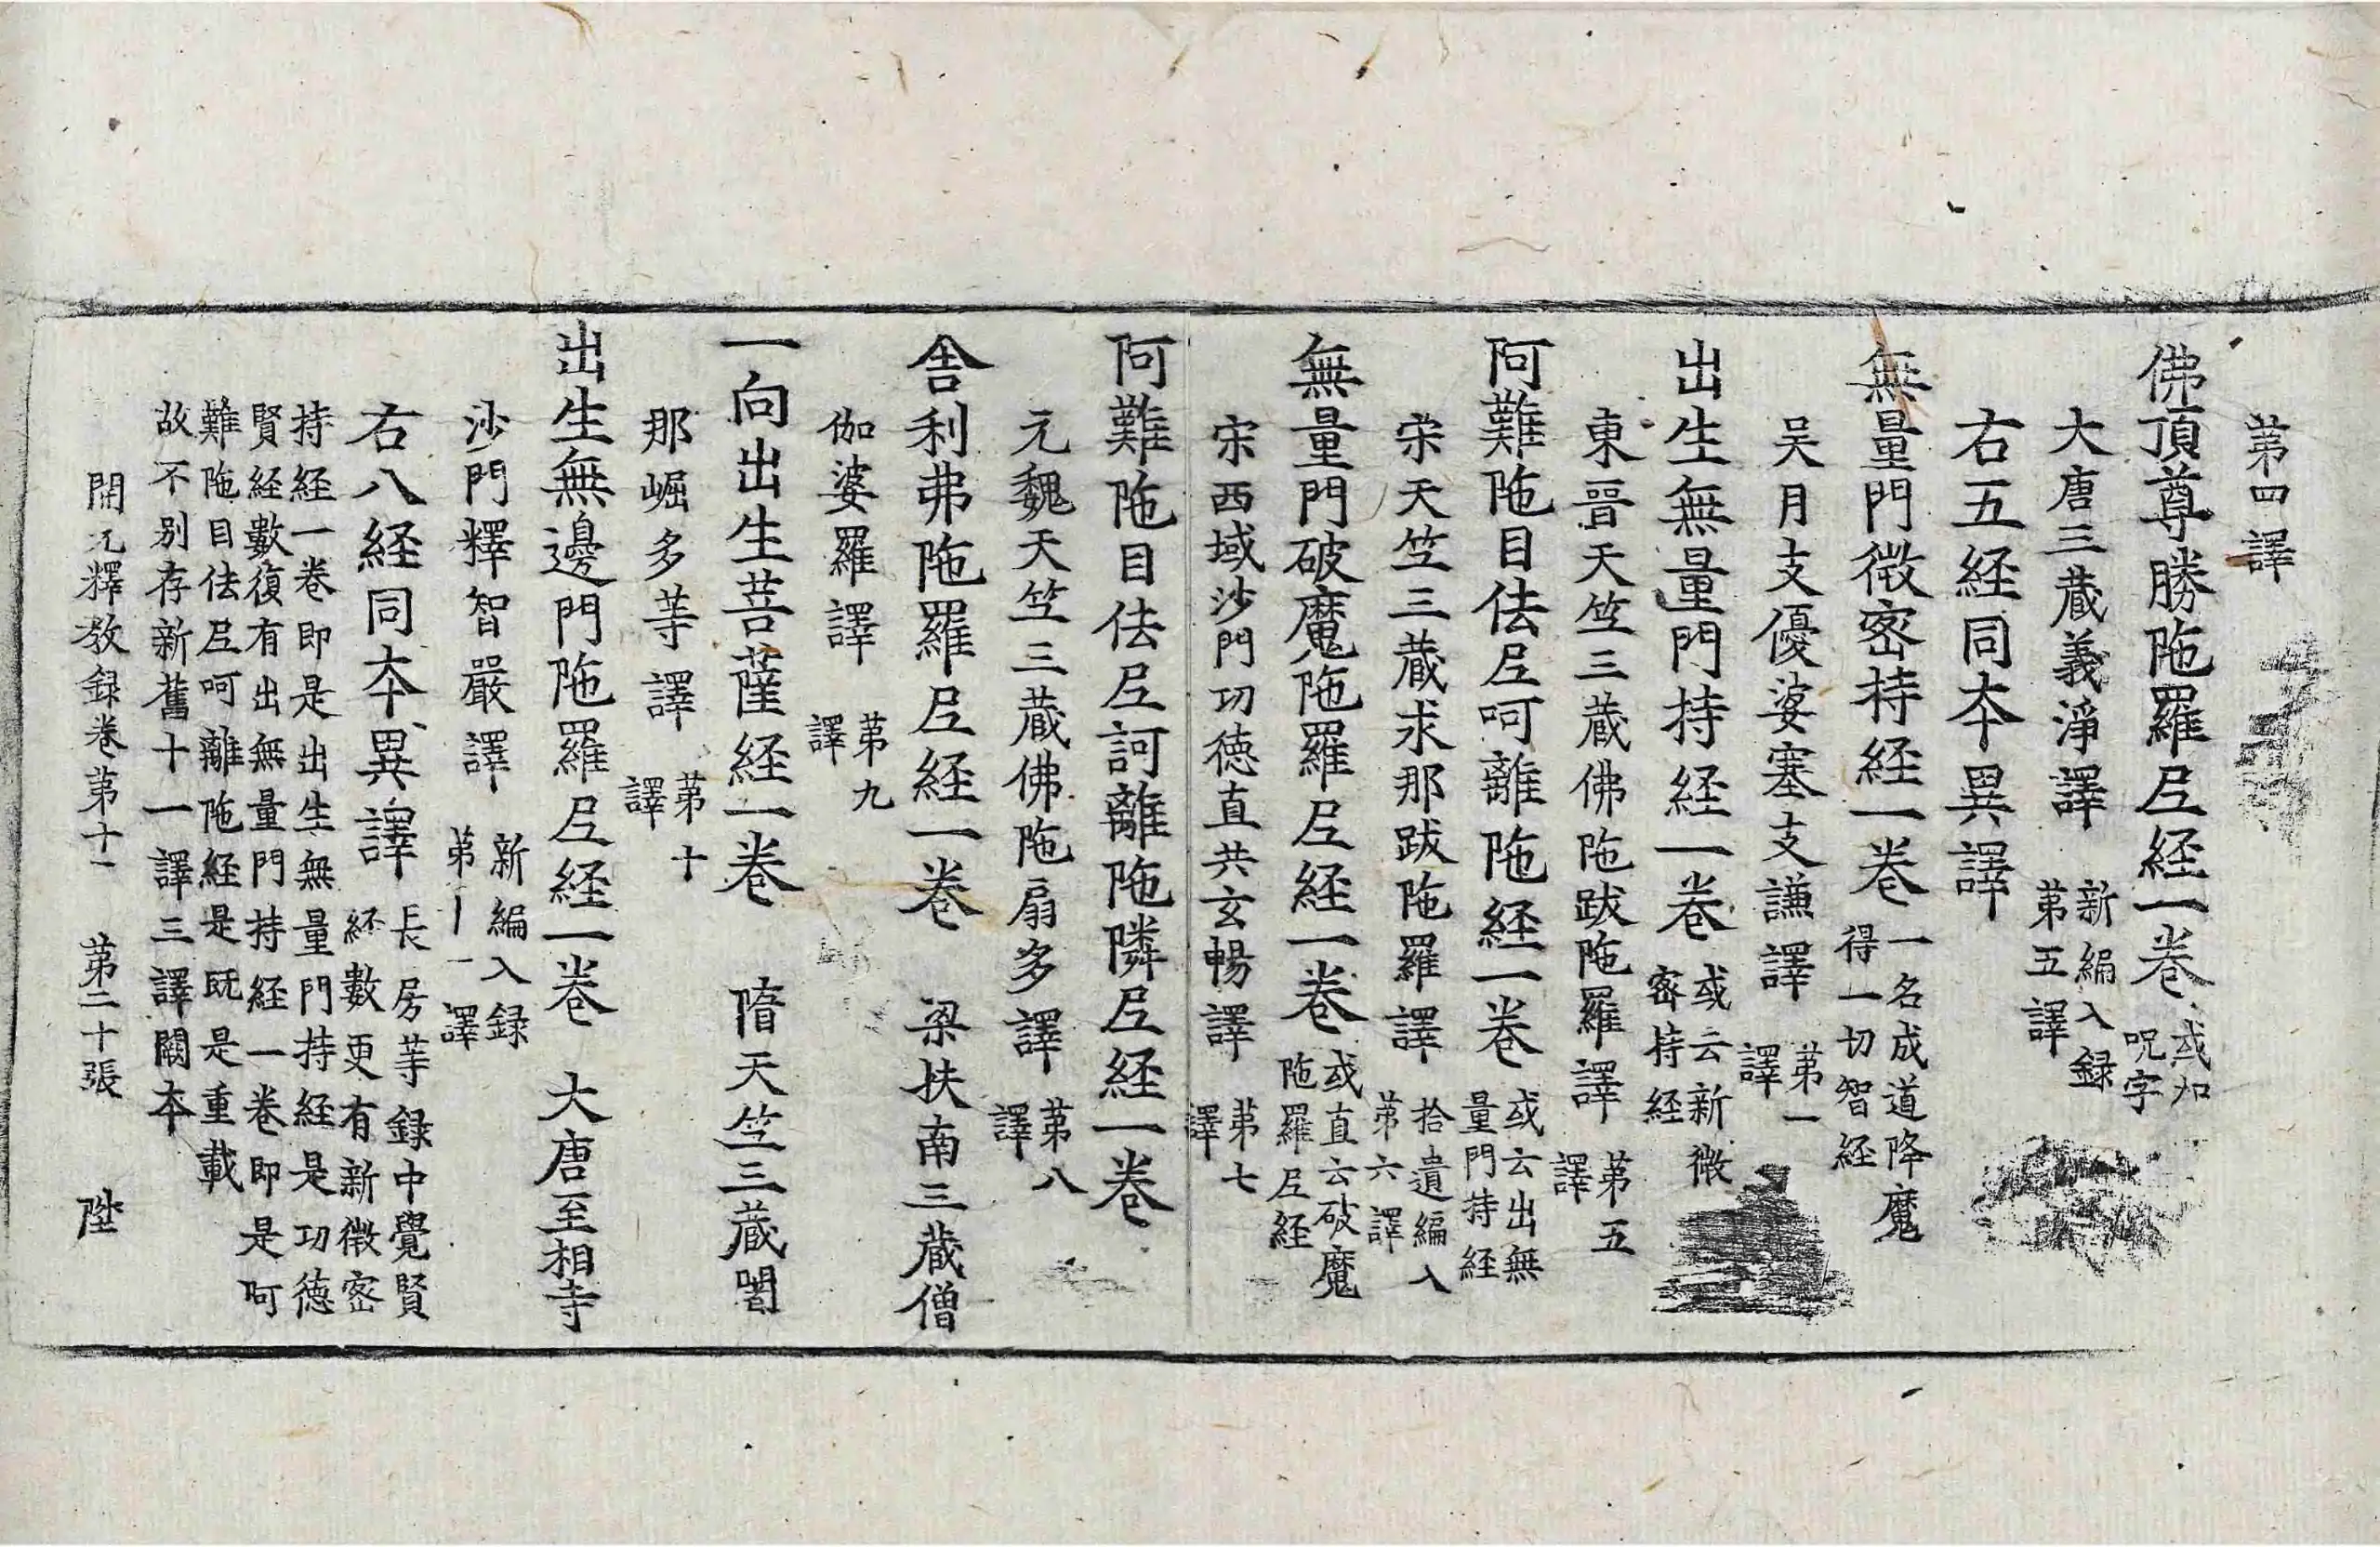 第四譯
佛頂尊勝陁羅尼経一巻 或加
呪字
大唐三蔵義淨譯 新編入録
第五譯
右五経同夲異譯
無量門微宻持経一巻 一名成道降魔
得一切智経
吴月支優婆塞支謙譯 第一
譯
出生無量門持経一巻 或云新微
宻持経
東晉天竺三蔵佛陁跋陁羅譯 第五
譯
阿難陁目佉尼呵離陁経一巻 或云出無
量門持経
宋天竺三蔵求那跋陁羅譯 拾遺編入
第六譯
無量門破魔陁羅尼経一巻 或直云破魔
陁羅尼経
宋西域沙門功徳直共玄暢譯 第七
譯
阿難陁目佉尼訶離陁隣尼経一巻
元魏天竺三蔵佛陁扇多譯 第八
譯
舎利弗陁羅尼経一巻 梁扶南三蔵僧
伽婆羅譯 第九
譯
一向出生菩薩経一巻 隋天竺三蔵闍
那崛多等譯 第十
譯
出生無邊門陁羅尼経一巻 大唐至相寺
沙門釋智嚴譯 新編入録
第十一譯
右八経同夲異譯 長房等録中覺賢
経數更有新微宻
持経一巻即是出生無量門持経是功徳
賢経數復有出無量門持経一巻即是阿
難陁目佉尼呵離陁経是既是重載
故不别存新舊十一譯三譯闕夲
開元釋教録巻第十一 第二十張 陞